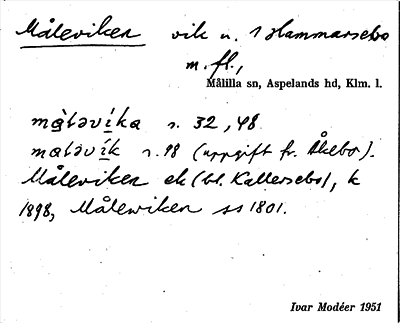 Måleviken vik u. 1 Hammarsebo
m. fl.,
Målilla sn, Aspelands hd, Klm. l.
målǝvíka s. 32, 48.
målǝvík s. 98 (uppgift fr. Åkebo).
Måleviken ek (bl. Kallersebo), k
1898, Målewiken ss 1801.
Ivar Modéer 1951